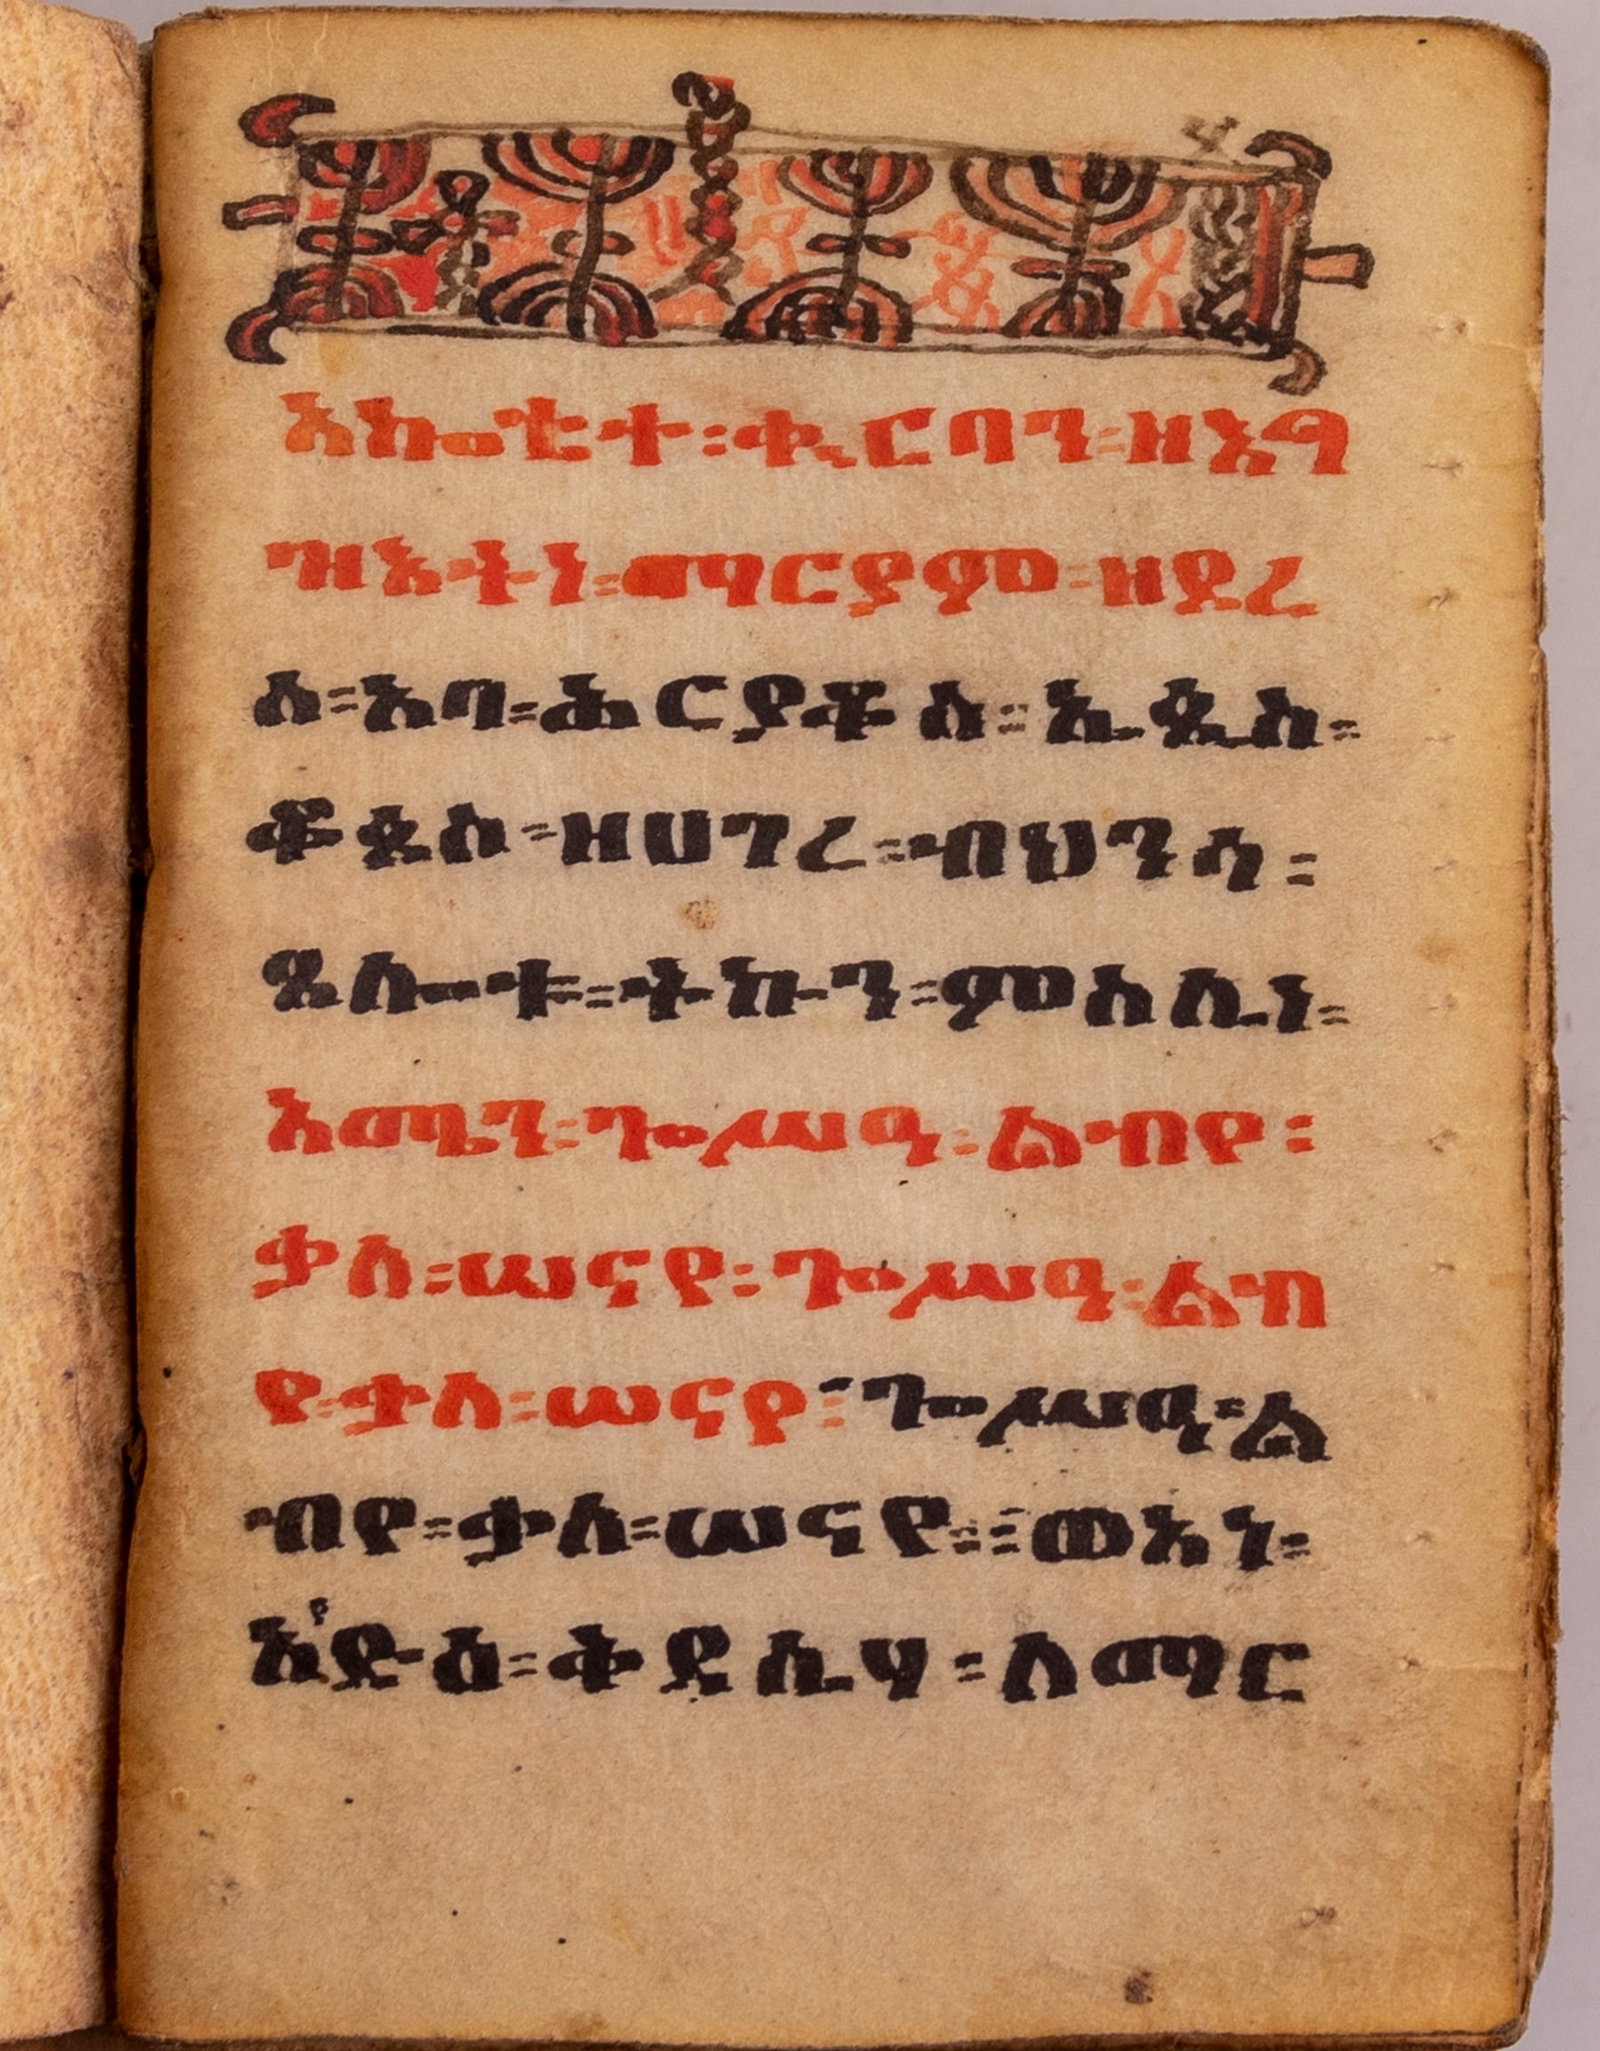 አኰቴተ፡ቍርባን፡ዘእግ
ዝእትነ፡ማርያም፡ዘደረ
ሰ፡አባ፡ሕርያቆስ፡ኤጲስ፡
ቆጶስ፡ዘሀገረ፡ብህንሳ፡
ጸሎቱ፡ትኩን፡ምስሌነ፡
አሜን፡ጐሥዐ፡ልብየ፡
ቃለ፡ሠናየ፡ጐሥዐ፡ልብ
የ፡ቃለ፡ሠናየ፡ጐሥዐ፡ል
ብየ፡ቃለ፡ሠናየ፡፡ወአነ፡
አየድዕ፡ቅዳሴሃ፡ለማር